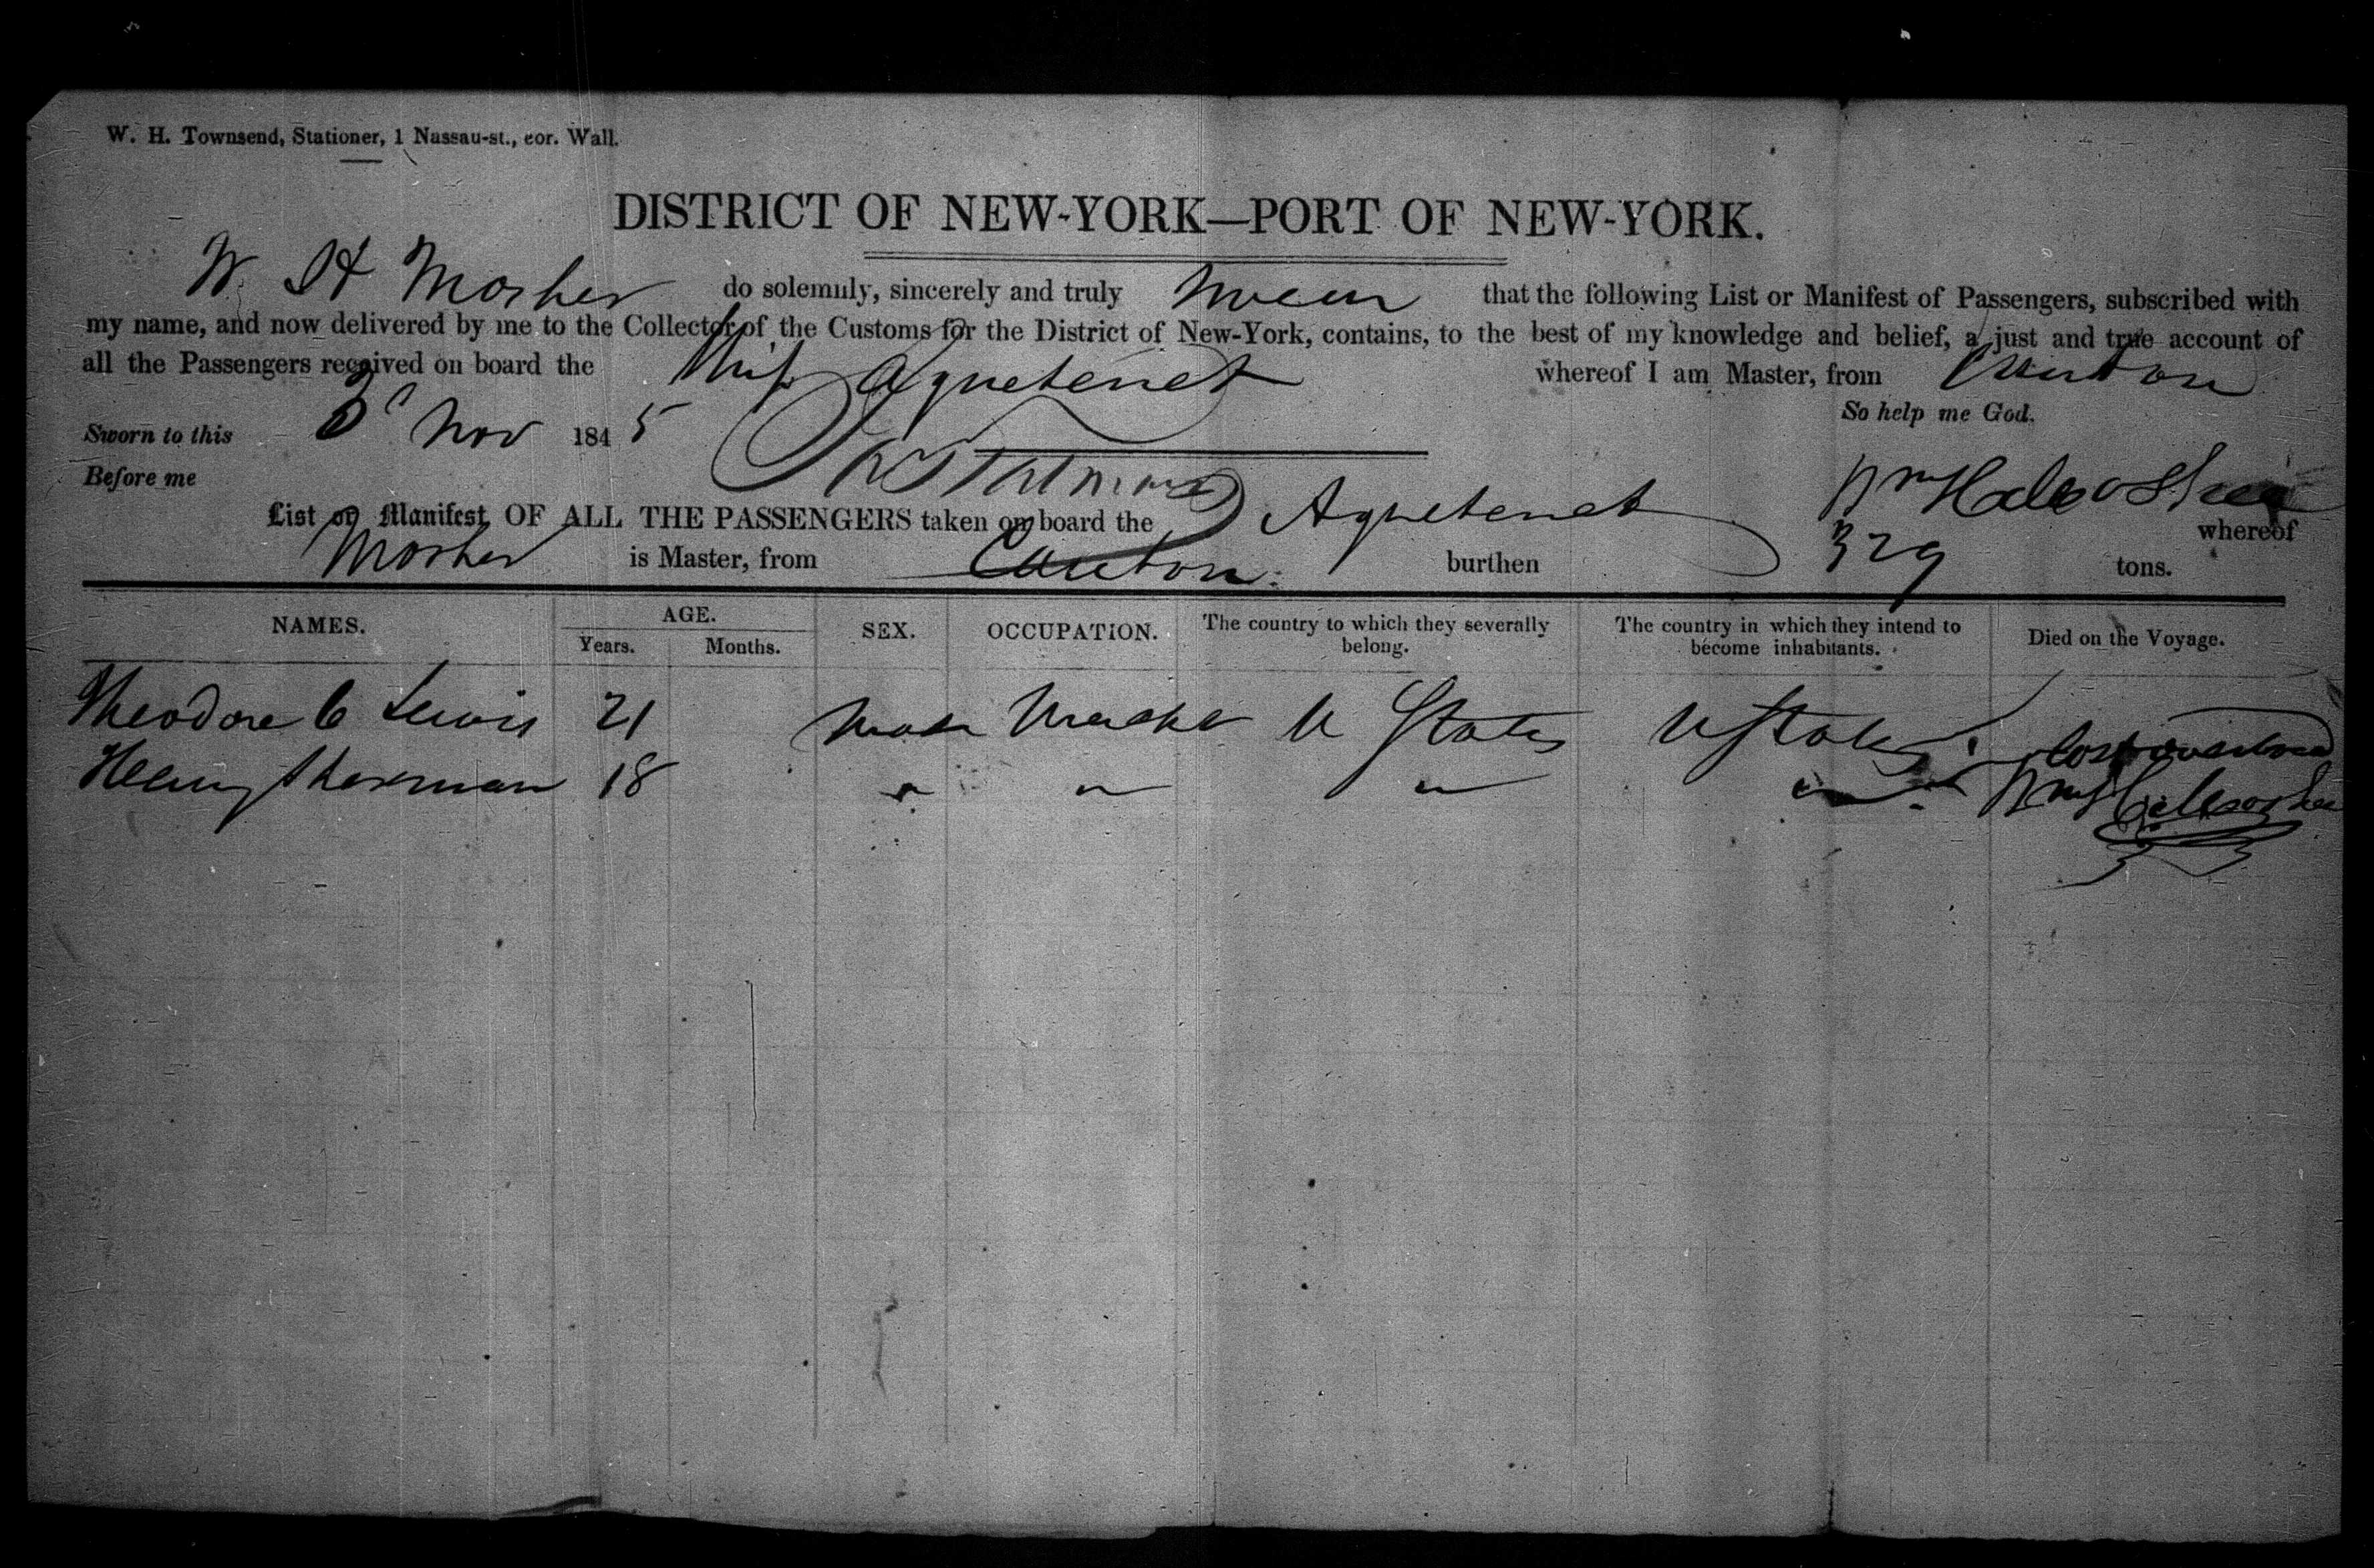 W. H. Townsend, Stationer, 1 Nassau-st., cor. Wall.
DISTRICT OF NEW-YORK—PORT OF NEW-YORK.
W. H Mosher do solemnly, sincerely and truly swear that the following List or Manifest of Passengers, subscribed with
my name, and now delivered by me to the Collector of the Customs for the District of New-York, contains, to the best of my knowledge and belief, a just and true account of
all the Passengers received on board the Ship Aquetenet whereof I am Master, from Canton
So help me God.
Sworn to this 3 Nov 1845
Before me
List or Manifest OF ALL THE PASSENGERS taken on board the Aquetenet whereof
Mosher is Master, from Canton burthen 329 tons.
NAMES. AGE. SEX. OCCUPATION. The country to which they severally belong. The country in which they intend to become inhabitants. Died on the Voyage.
Years. Months.
Theodore C Lewis 21 Male Mercht U States U States Lost overboard
Henry Sherman 18 " " " "